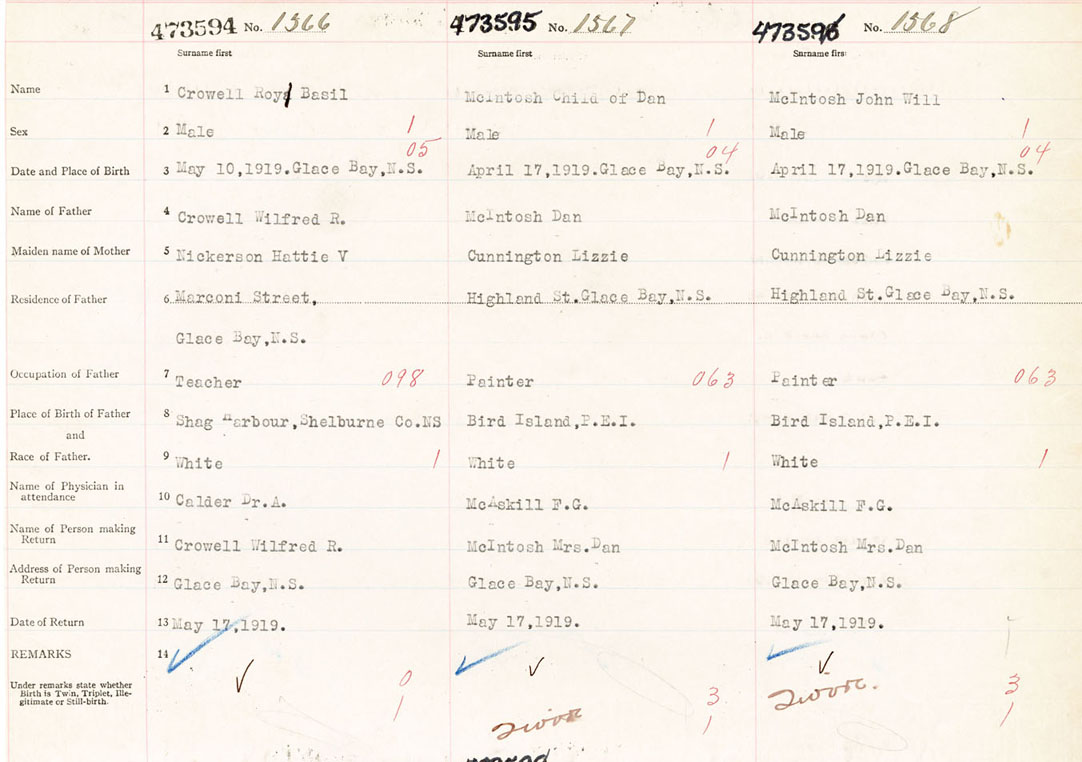 473594 No. 1566 473595 No. 1567 473596 No. 1568
Surname first Surname first Surname first
Name 1 Crowell Roy Basil McIntosh Child of Dan McIntosh John Will
Sex 2 Male 1 Male 1 Male 1
05 04 04
Date and Place of Birth 3 May 10,1919.Glace Bay,N.S. April 17,1919.Glace Bay,N.S. April 17,1919.Glace Bay,N.S.
Name of Father 4 Crowell Wilfred R. McIntosh Dan McIntosh Dan
Maiden name of Mother 5 Nickerson Hattie V Cunnington Lizzie Cunnington Lizzie
Residence of Father 6 Marconi Street, Highland St.Glace Bay,N.S. Highland St.Glace Bay,N.S.
Glace Bay,N.S.
Occupation of Father 7 Teacher 098 Painter 063 Painter 063
Place of Birth of Father 8 Shag Harbour,Shelburne Co.NS Bird Island,P.E.I. Bird Island,P.E.I.
and
Race of Father. 9 White 1 White 1 White 1
Name of Physician in
attendance 10 Calder Dr.A. McAskill F.G. McAskill F.G.
Name of Person making
Return 11 Crowell Wilfred R. McIntosh Mrs.Dan McIntosh Mrs.Dan
Address of Person making
Return 12 Glace Bay,N.S. Glace Bay,N.S. Glace Bay,N.S.
Date of Return 13 May 17,1919. May 17,1919. May 17,1919.
REMARKS 14
Under remarks state whether
Birth is Twin, Triplet, Ille-
gitimate or Still-birth.
0 3 3
1 1 1